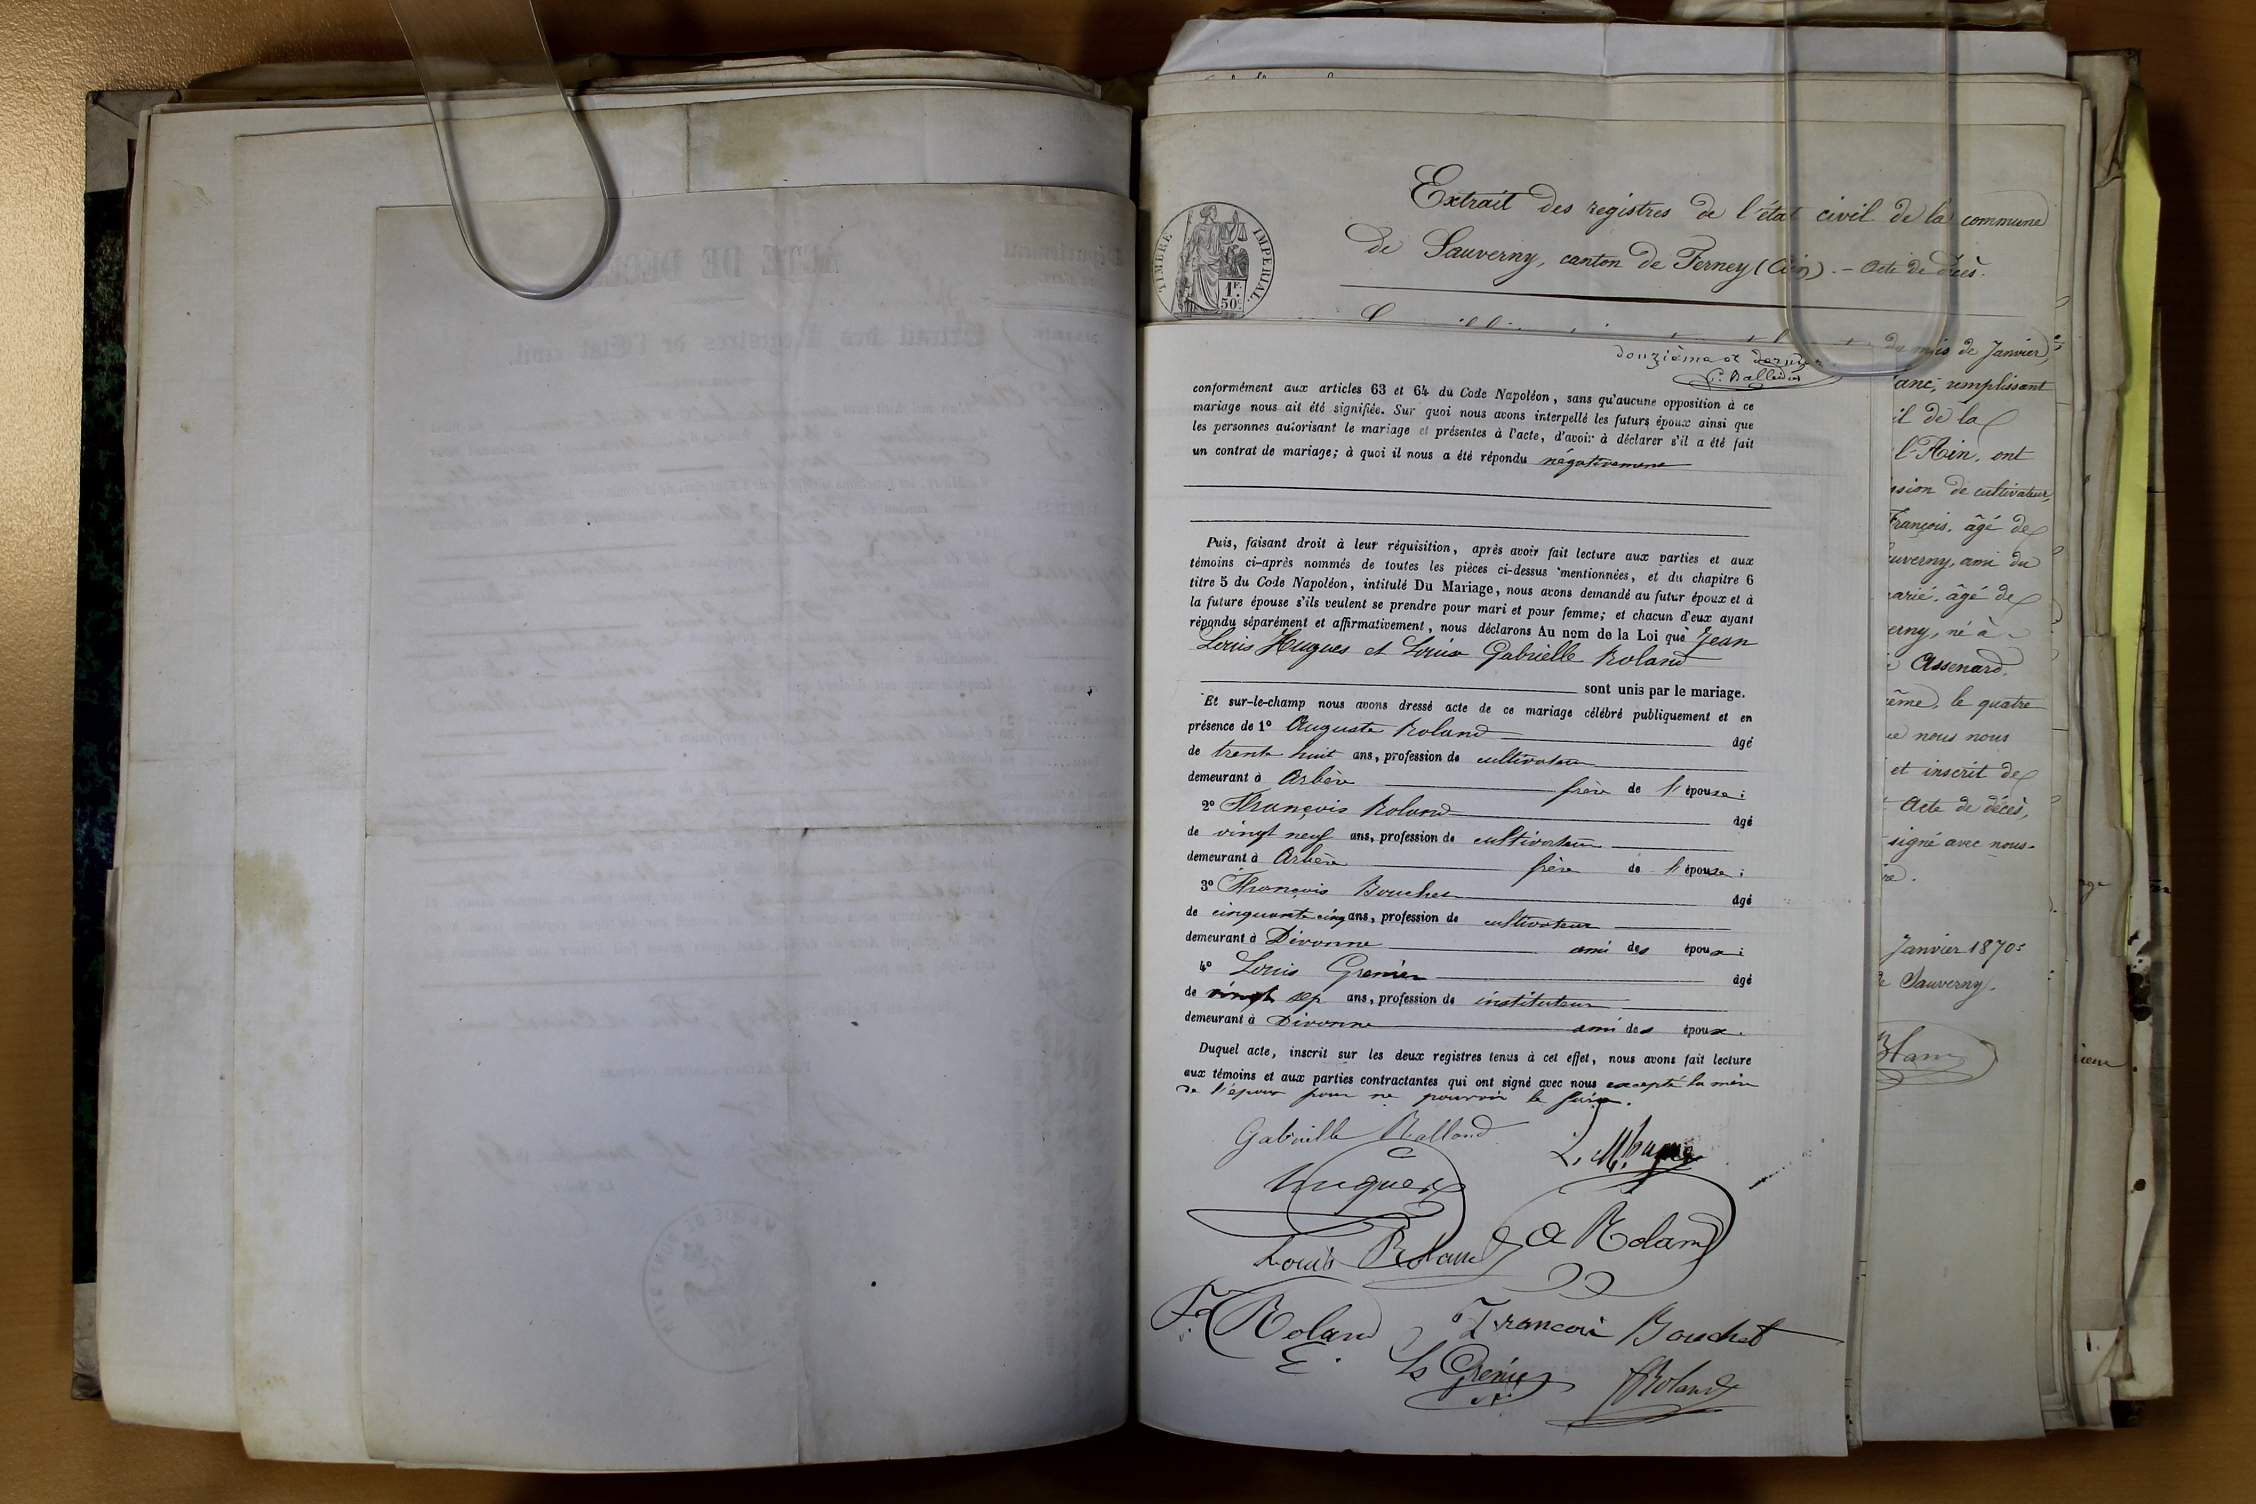 Extrait des registres de l'état civil de la commune
de Sauverny, canton de Ferney (Ain). - Acte de décès.
TIMBRE IMPERIAL.
1F.
50c
douzième et dernier
conformément aux articles 63 et 64 du Code Napoléon, sans qu'aucune opposition à ce
mariage nous ait été signifiée. Sur quoi nous avons interpellé les futurs époux ainsi que
les personnes autorisant le mariage et présentes à l'acte, d'avoir à déclarer s'il a été fait
un contrat de mariage; à quoi il nous a été répondu négativement
Puis, faisant droit à leur réquisition, après avoir fait lecture aux parties et aux
témoins ci-après nommés de toutes les pièces ci-dessus mentionnées, et du chapitre 6
titre 5 du Code Napoléon, intitulé Du Mariage, nous avons demandé au futur époux et à
la future épouse s'ils veulent se prendre pour mari et pour femme; et chacun d'eux ayant
répondu séparément et affirmativement, nous déclarons Au nom de la Loi que Jean
Louis Hugues et Louise Gabrielle Roland
sont unis par le mariage.
Et sur-le-champ nous avons dressé acte de ce mariage célébré publiquement et en
présence de 1° Auguste Roland âgé
de trente huit ans, profession de cultivateur
demeurant à Arbère frère de l'épouse;
2° François Roland âgé
de vingt neuf ans, profession de cultivateur
demeurant à Arbère frère de l'épouse;
3° François Bouchet âgé
de cinquante cinq ans, profession de cultivateur
demeurant à Divonne ami des époux;
4° Louis Grenier âgé
de vingt sep ans, profession de instituteur
demeurant à Divonne ami des époux.
Duquel acte, inscrit sur les deux registres tenus à cet effet, nous avons fait lecture
aux témoins et aux parties contractantes qui ont signé avec nous excepté la mère
de l'époux pour ne pouvoir le faire.
Gabrielle Rolland
Hugues
Louis Roland
A Roland
F. Roland
Francois Bouchet
Ls Grenier
Roland
du mois de Janvier,
remplissant
il de la
l'Ain, ont
ssion de cultivateur,
François, âgé de
uverny, ami du
arié, âgé de
erny, né à
Assenard,
ême, le quatre
ue nous nous
et inscrit de
Acte de décès,
signé avec nous.
Janvier 1870:
Sauverny.